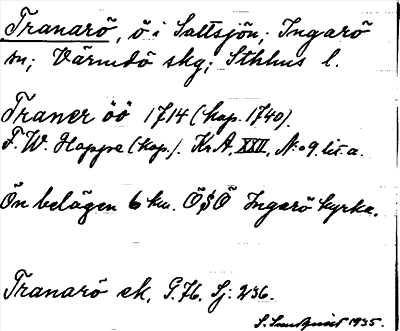 Tranarö, ö i Saltsjön; Ingarö
sn; Värmdö skg; Sthlms l.
Traner öö 1714 (kop. 1740).
F. W. Hoppe (kop.). Kr. A. XXII, N:o 9. lit. a.
Ön belägen 6 km. ÖSÖ Ingarö kyrka.
Tranarö ek, G. 76. Sj. 236.
S. Sundquist 1935.